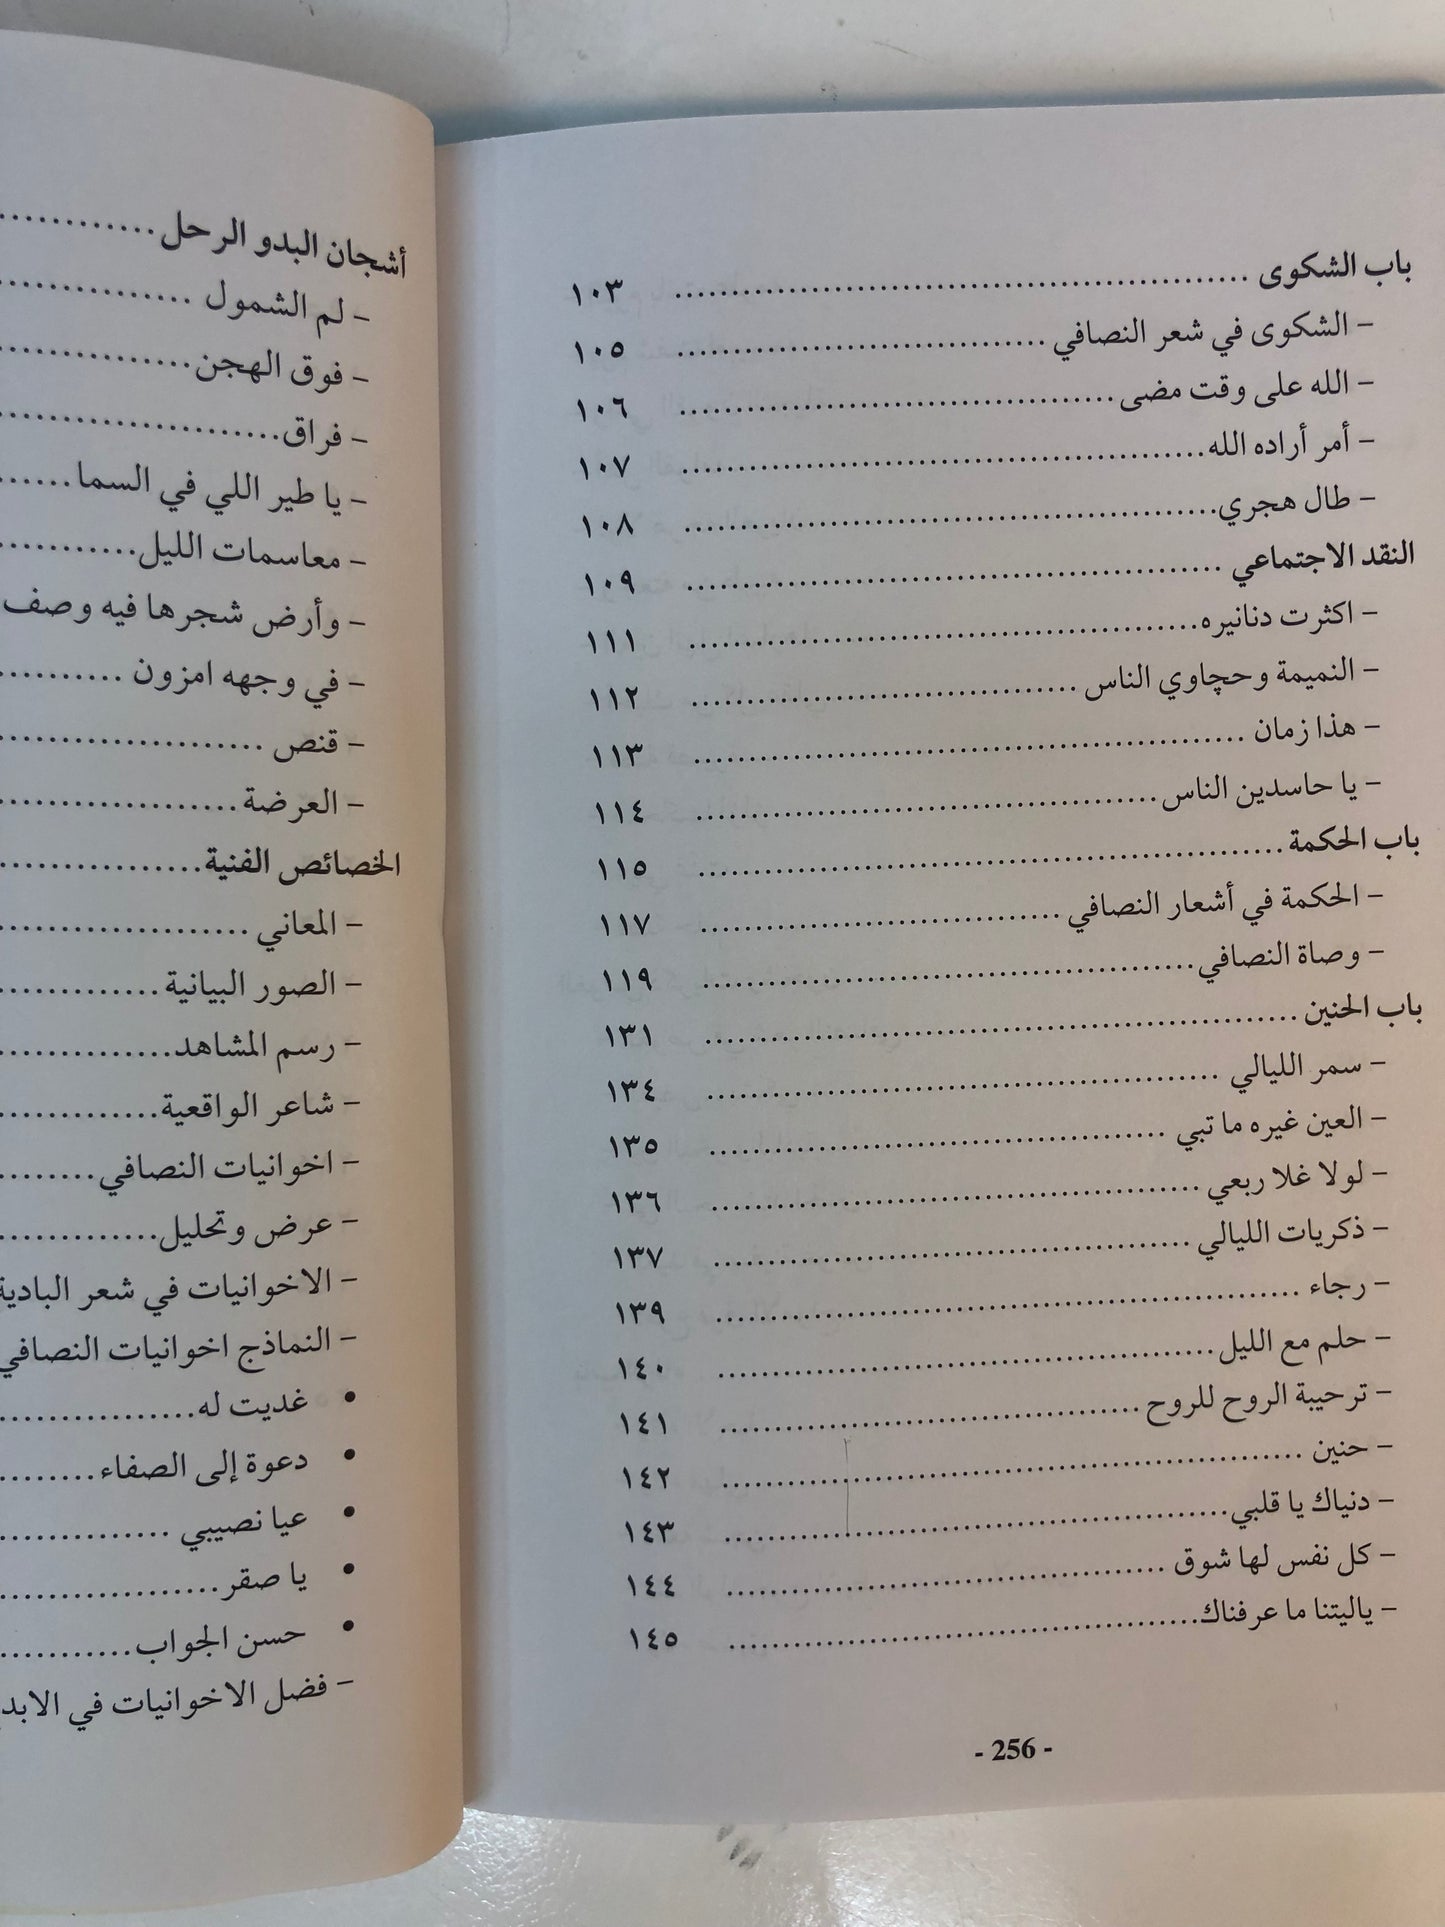 باب الشكوى ........................................ ١٠٣
– الشكوى في شعر النصافي ........................................ ١٠٥
– الله على وقت مضى ........................................ ١٠٦
– أمر أراده الله ........................................ ١٠٧
– طال هجري ........................................ ١٠٨
النقد الاجتماعي ........................................ ١٠٩
– اكثرت دنانيره ........................................ ١١١
– النميمة وحچاوي الناس ........................................ ١١٢
– هذا زمان ........................................ ١١٣
– يا حاسدين الناس ........................................ ١١٤
باب الحكمة ........................................ ١١٥
– الحكمة في أشعار النصافي ........................................ ١١٧
– وصاة النصافي ........................................ ١١٩
باب الحنين ........................................ ١٣١
– سمر الليالي ........................................ ١٣٤
– العين غيره ما تبي ........................................ ١٣٥
– لولا غلا ربعي ........................................ ١٣٦
– ذكريات الليالي ........................................ ١٣٧
– رجاء ........................................ ١٣٩
– حلم مع الليل ........................................ ١٤٠
– ترحيبة الروح للروح ........................................ ١٤١
– حنين ........................................ ١٤٢
– دنياك يا قلبي ........................................ ١٤٣
– كل نفس لها شوق ........................................ ١٤٤
– ياليتنا ما عرفناك ........................................ ١٤٥
- 256 -
أشجان البدو الرحل ............
– لم الشمول ............
– فوق الهجن ............
– فراق ............
– يا طير اللي في السما ......
– معاسمات الليل ............
– وأرض شجرها فيه وصف
– في وجهه امزون ..........
– قنص ............
– العرضة ............
الخصائص الفنية ............
– المعاني ............
– الصور البيانية ............
– رسم المشاهد ............
– شاعر الواقعية ............
– اخوانيات النصافي ........
– عرض وتحليل ............
– الاخوانيات في شعر البادية
– النماذج اخوانيات النصافي
• غديت له ............
• دعوة إلى الصفاء ........
• عيا نصيبي ............
• يا صقر ............
• حسن الجواب ............
– فضل الاخوانيات في